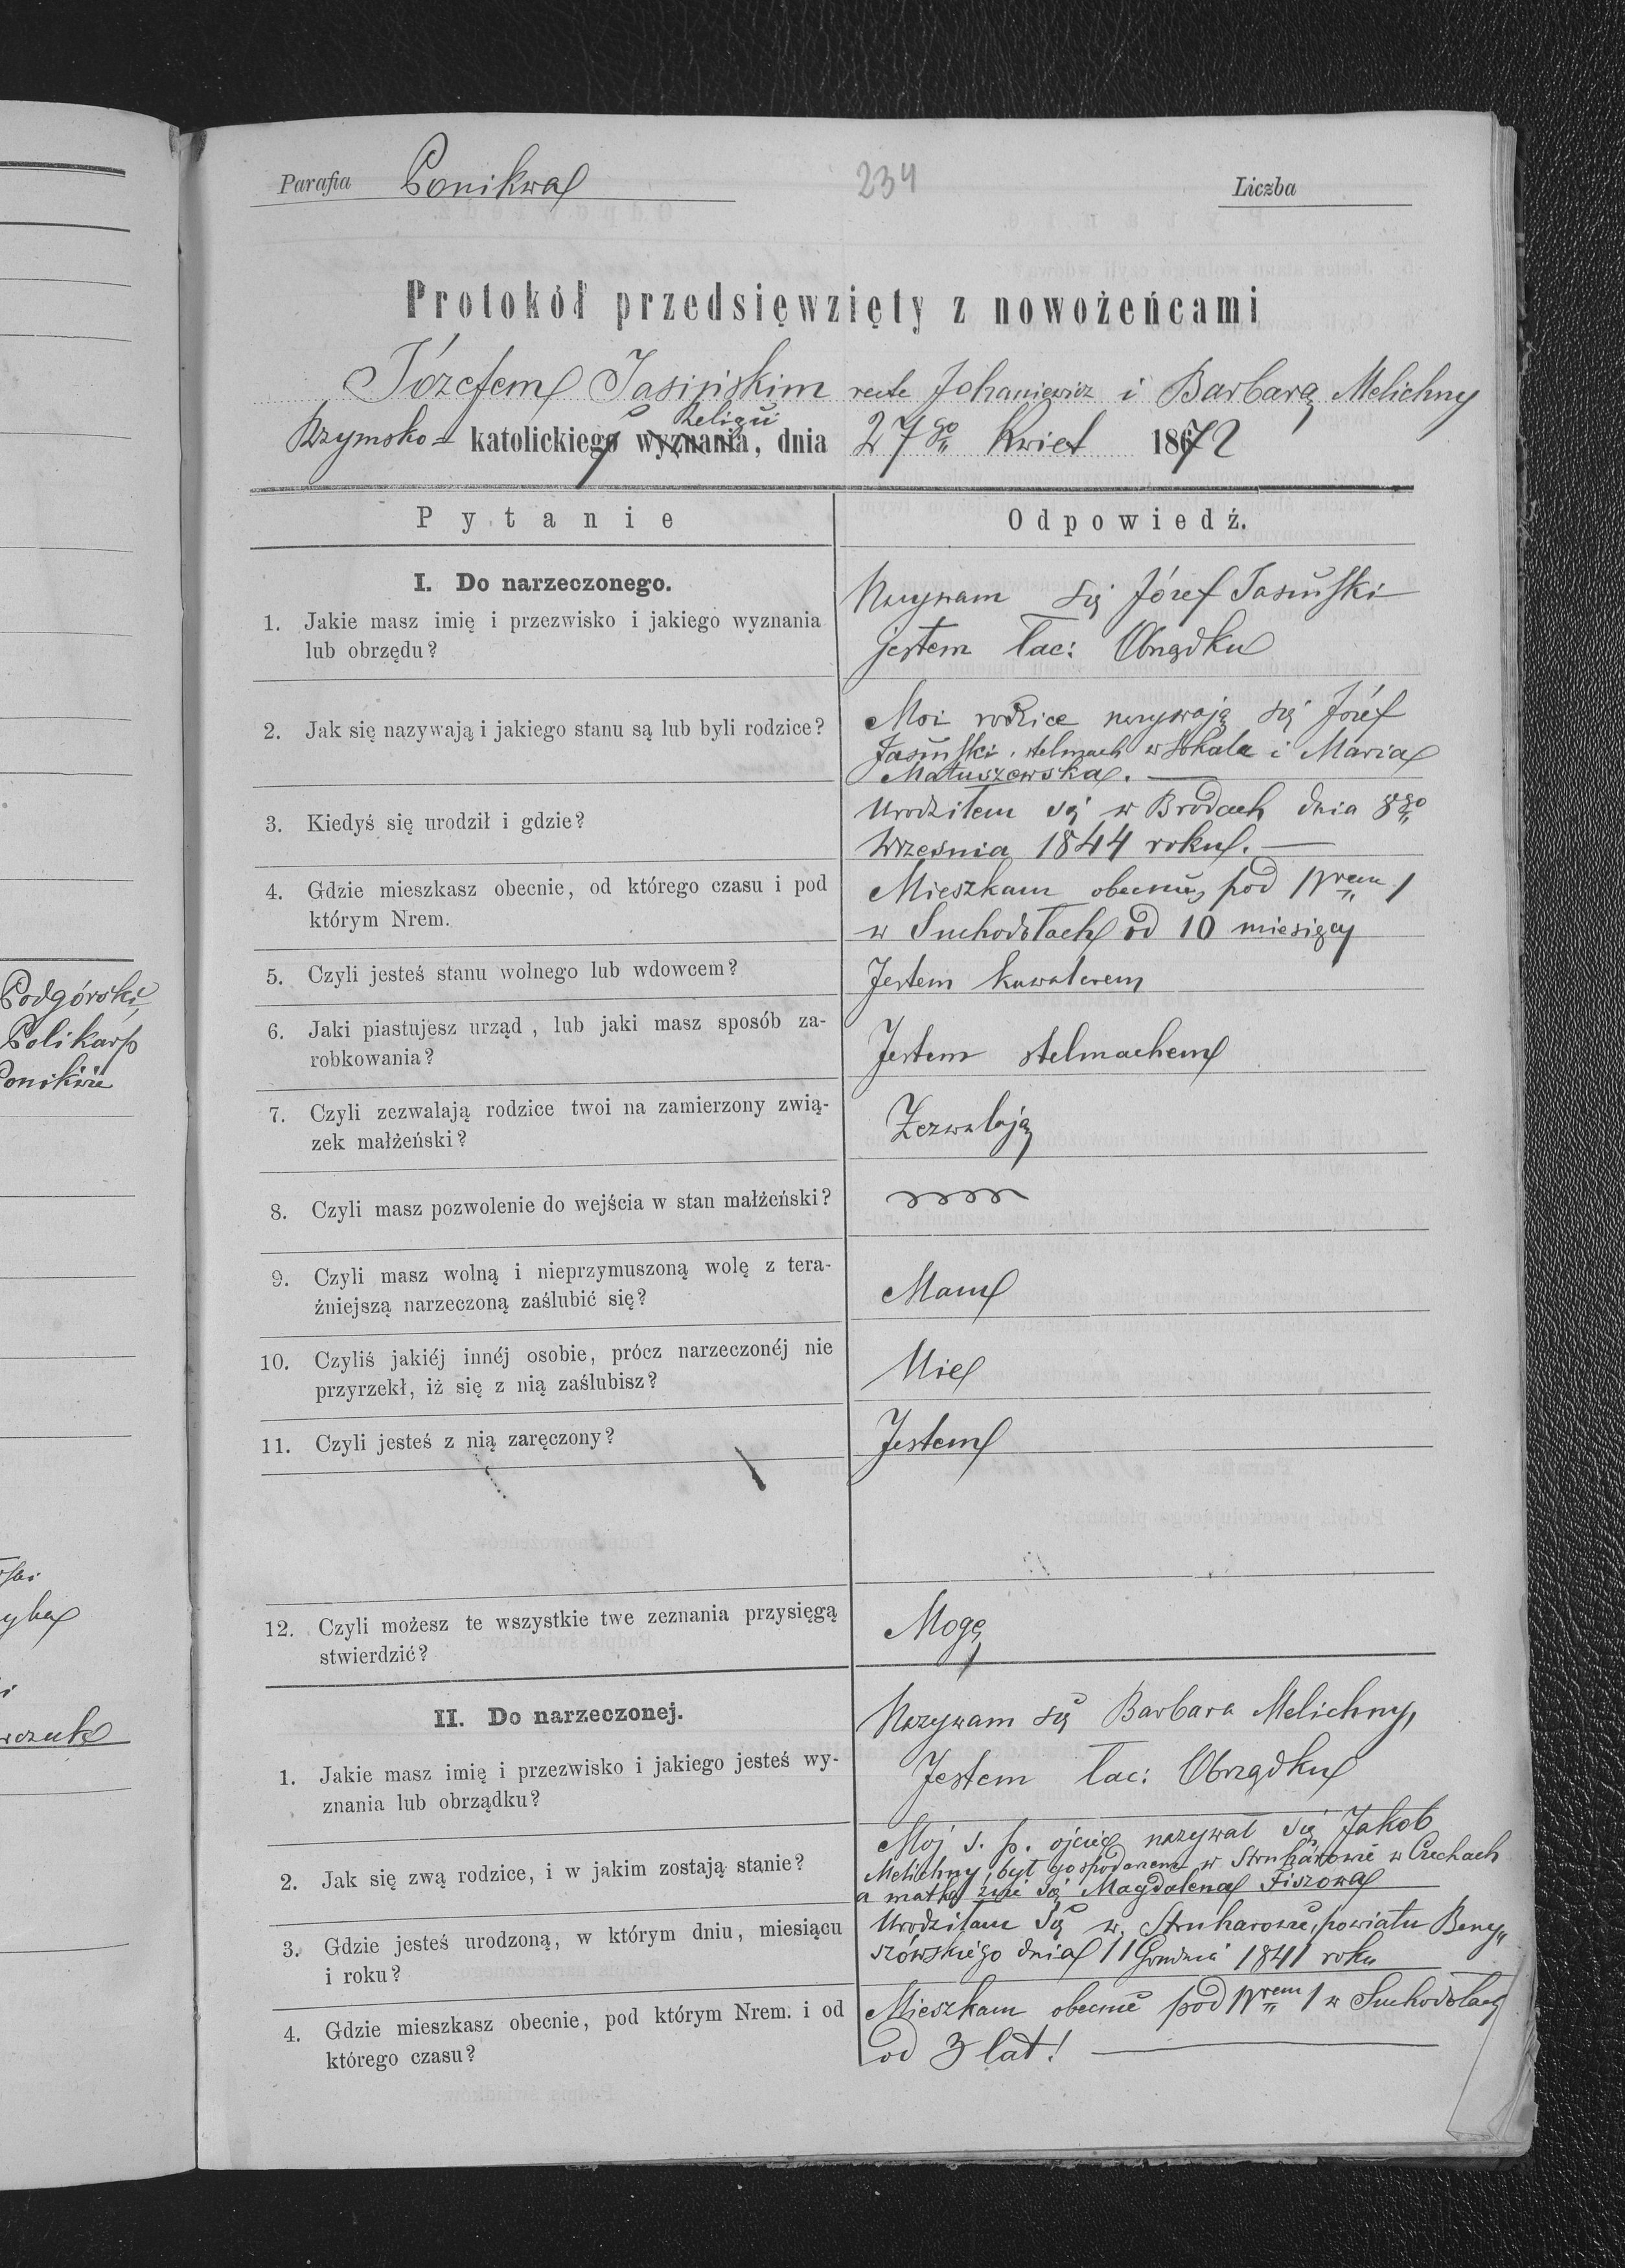 Parafia Ponikwa
234
Liczba
Protokół przedsięwzięty z nowożeńcami
Józefem Jasińskim recte Johaniewicz i Barbarą Melichny
Religii
Rzymsko- katolickiego wyznania, dnia 27go Kwiet 1872
Pytanie
Odpowiedź.
I. Do narzeczonego.
1. Jakie masz imię i przezwisko i jakiego wyznania
lub obrzędu?
Nazywam się Józef Jasiński
jestem łac: Obrządku
2. Jak się nazywają i jakiego stanu są lub byli rodzice?
Moi rodzice nazywają się Józef
Jasiński, stelmach w Sokalu i Maria
Matuszewska.
3. Kiedyś się urodził i gdzie?
Urodziłem się w Brodach dnia 8go
Września 1844 roku.
4. Gdzie mieszkasz obecnie, od którego czasu i pod
którym Nrem.
Mieszkam obecnie pod Nrem 1
w Suchodołach od 10 miesięcy
5. Czyli jesteś stanu wolnego lub wdowcem?
Jestem kawalerem
6. Jaki piastujesz urząd, lub jaki masz sposób za-
robkowania?
Jestem stelmachem
7. Czyli zezwalają rodzice twoi na zamierzony zwią-
zek małżeński?
Zezwalają
8. Czyli masz pozwolenie do wejścia w stan małżeński?
9. Czyli masz wolną i nieprzymuszoną wolę z tera-
źniejszą narzeczoną zaślubić się?
Mam
10. Czyliś jakiéj innéj osobie, prócz narzeczonéj nie
przyrzekł, iż się z nią zaślubisz?
Nie
11. Czyli jesteś z nią zaręczony?
Jestem
12. Czyli możesz te wszystkie twe zeznania przysięgą
stwierdzić?
Mogę
II. Do narzeczonej.
1. Jakie masz imię i przezwisko i jakiego jesteś wy-
znania lub obrządku?
Nazywam się Barbara Melichny,
Jestem łac: Obrządku
2. Jak się zwą rodzice, i w jakim zostają stanie?
Moj ś. p. ojciec nazywał się Jakob
Melichny, był gospodarzem w Struharowie w Czechach
a matka zwie się Magdalena Fiszowa
3. Gdzie jesteś urodzoną, w którym dniu, miesiącu
i roku?
Urodziłam się w Struharowie, powiatu Beny„
szówskiego dnia 11 Grudnia 1841 roku
4. Gdzie mieszkasz obecnie, pod którym Nrem. i od
którego czasu?
Mieszkam obecnie pod Nrem 1 w Suchodołach
od 3 lat!
Podgórski,
Polikarp
Ponikwie